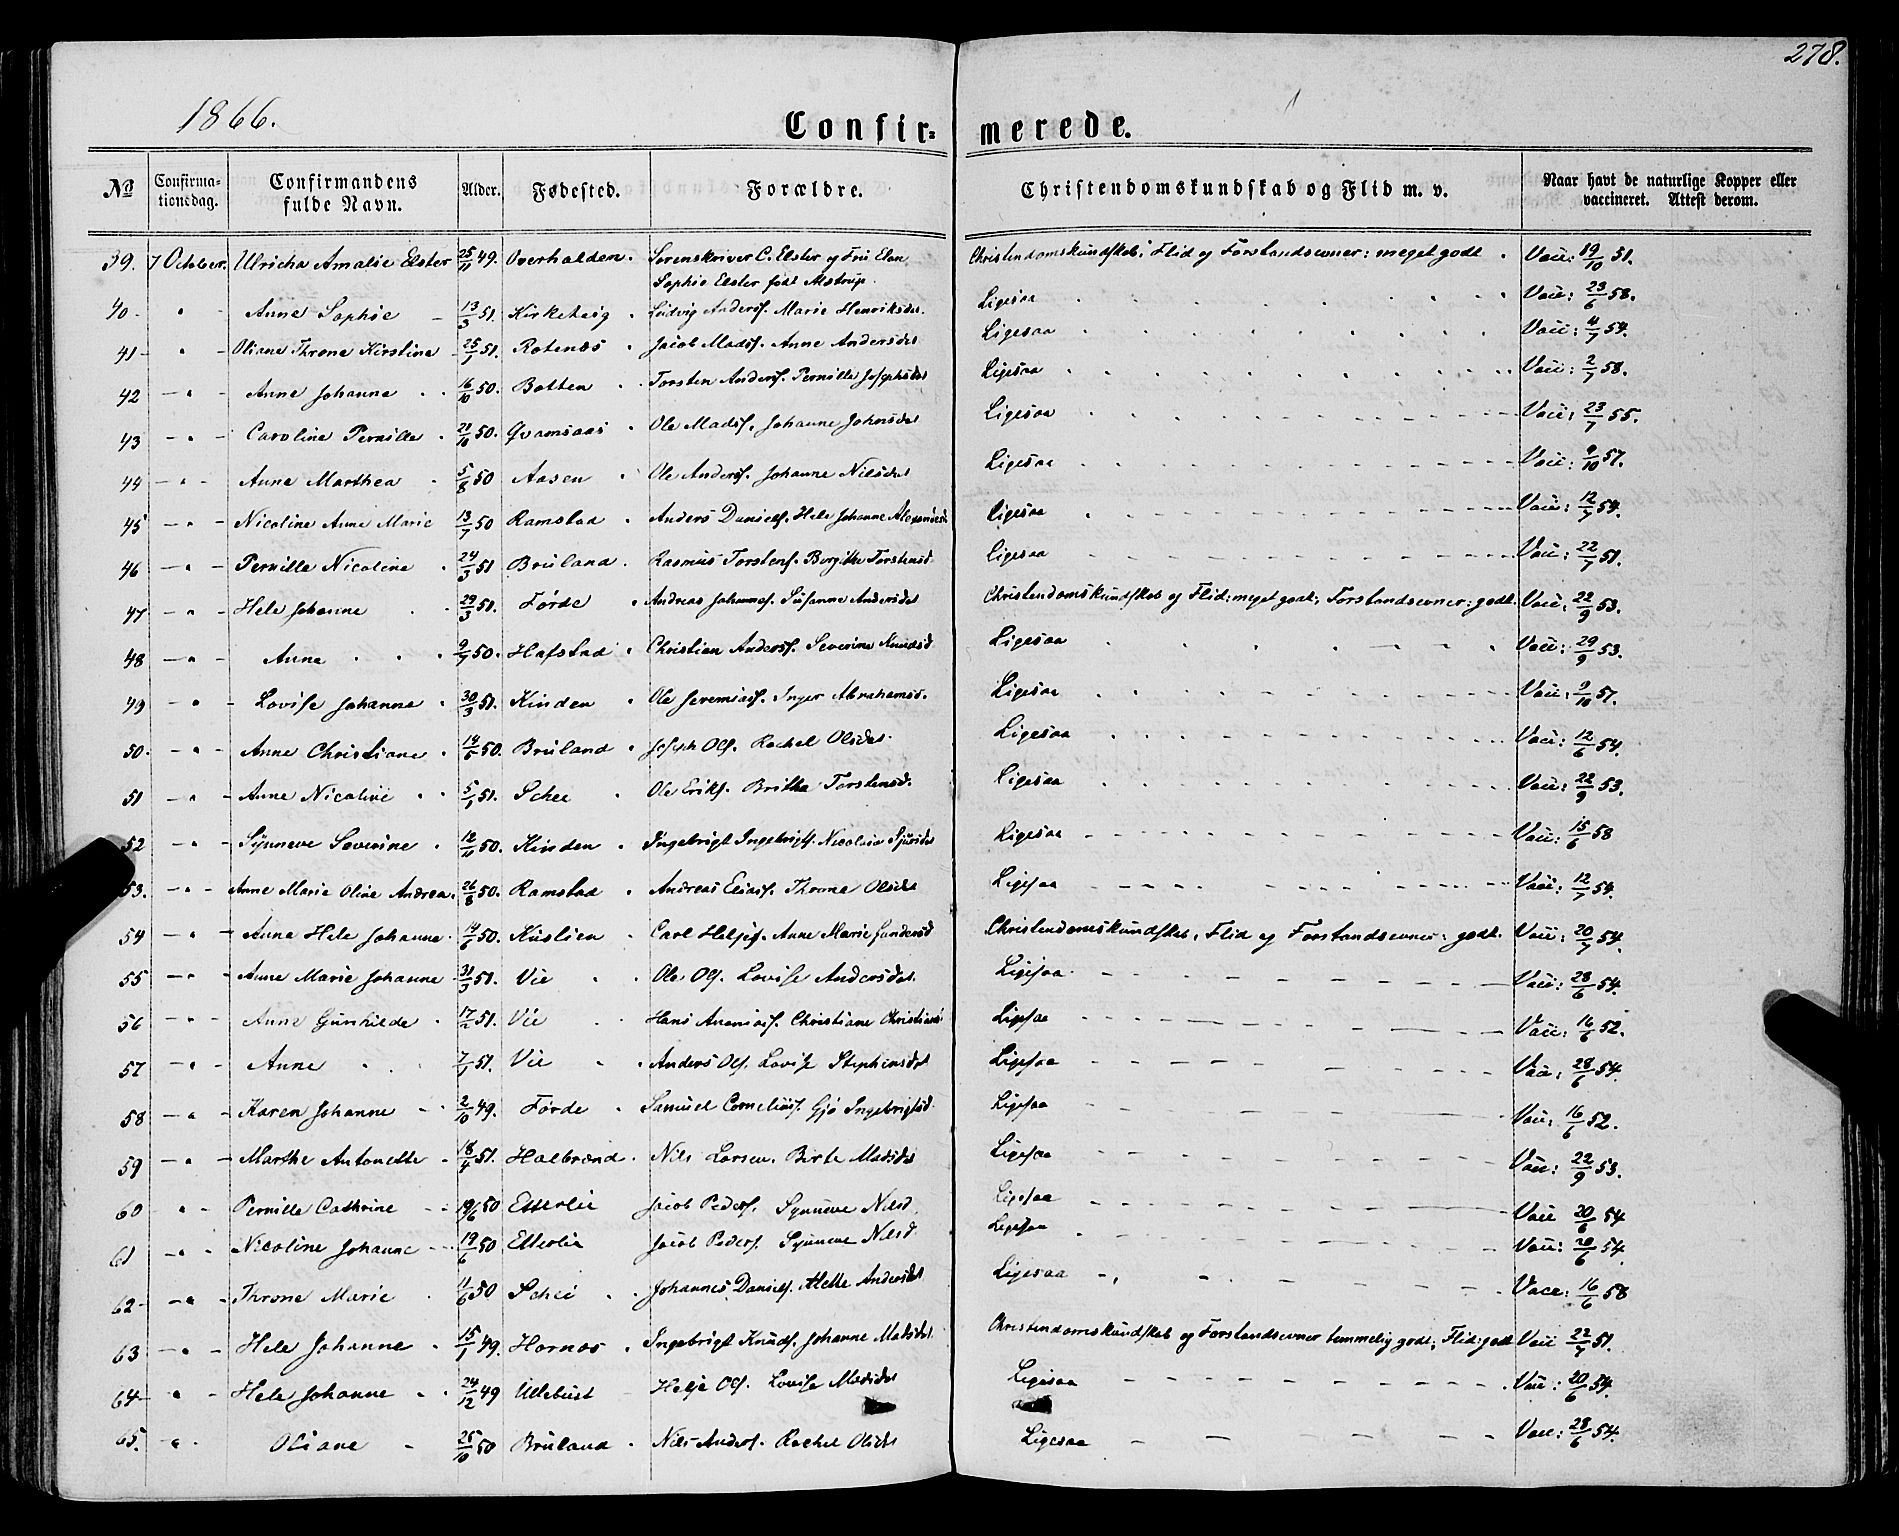 278.
1866.
Confir- merede.
No Confirmationsdag. Confirmandens fulde Navn. Alder. Fødested. Forældre. Christendomskundskab og Flid m. v. Naar havt de naturlige Kopper eller vaccineret. Attest derom.
39. 7 October. Ulricha Amalie Elster 25/11 49. Overhalden. Sorenskriver C. Elster og Fru Elen Christendomskundskab, Flid og Forstandsevner: meget godt. Vacc: 19/10 51.
Sophie Elster født Alstrup.
40 - " - Anne Sophie 13/3 51. Kirketeig Ludvig Anderss. Marie Henriksdat. Ligesaa Vacc: 23/6 58.
41 - " - Oliane Throne Kirstine 25/1 51. Rotenæs Jacob Madss. Anne Andersdat Ligesaa Vacc: 11/7 54.
42 - " - Anne Johanne 16/10 50. Botten Torsten Anderss. Pernille Josephsdat Ligesaa Vacc: 2/7 58.
43 - " - Caroline Pernille 21/10 50. Qvamsaas Ole Madss. Johanne Johnsdat Ligesaa Vacc: 23/7 55.
44 - " - Anne Marthea 5/8 50 Aasen Ole Anderss. Johanne Nilsdat Ligesaa Vacc: 9/10 57.
45 - " - Nicoline Anne Marie 13/7 50 Ramstad Anders Daniels. Hele Johanne Ligesaa Vacc: 12/7 54.
46 - " - Pernille Nicoline 24/3 51 Bruland. Rasmus Torstens. Borgitha Torstensd. Ligesaa Vacc: 22/7 51.
47 - " - Hele Johanne 29/3 51. Førde Andreas Johannes. Susanne Andersdat Christendomskundskab og Flid: meget godt; Forstandsevner: godt. Vacc: 22/9 53.
48 - " - Anne 9/7 50. Hafstad Christian Anderss. Severine Knudsd Ligesaa Vacc: 29/9 53.
49 - " - Lovise Johanne 30/3 51. Kinden Ole Jeremiass. Inger Abrahamsd. Ligesaa Vacc: 9/10 57.
50. - " - Anne Christiane 14/5 50. Bruland Joseph Ols. Rachel Olsdat. Ligesaa Vacc: 12/6 54.
51 - " - Anne Nicoline 5/1 51. Schee Ole Eriks. Britha Torstensd. Ligesaa Vacc: 22/9 53.
52 - " - Synneve Severine 12/11 50. Kinden Ingebrigt Ingebrigts. Nicolina Sjursdat Ligesaa Vacc: 15/6 58
53. - " - Anne Marie Oline Andrea. 26/8 50. Ramstad Andreas Eliass. Throne Olsdat Ligesaa Vacc: 12/7 54.
54 - " - Anne Hele Johanne 50. Kuslien Carl Helges. Anne Marie Christendomskundskab, Flid og Forstandsevner: godt. Vacc: 20/7 54.
55 - " - Anne Marie Johanne 31/3 51. Vie Ole Ols. Lovise Andersdat. Ligesaa Vacc: 28/6 54.
56 - " - Anne Gunhilde 17/2 51. Vie Hans Ananiass. Christiane Ligesaa Vacc: 16/6 52.
57 - " - Anne 7/1 51. Vie Anders Ols. Lovise Stephensdat Ligesaa Vacc: 28/6 54.
58 - " - Karen Johanne 2/10 49. Førde Samuel Cornelius. Gjø Ingebrigtsd. Ligesaa Vacc: 16/6 52.
59 - " - Marthe Antonette 18/4 51. Halbrænd. Nils Larsen. Birte Madsdat Ligesaa Vacc: 22/9 53.
60 - " - Pernille Cathrine 19/6 50 Etterlie Jacob Peders. Synneve Nilsd. Ligesaa Vacc 20/6 54
61 - " - Nicoline Johanne 19/6 50 Etterlie Jacob Peders. Synneve Nilsd Ligesaa Vacc: 20/6 54
62 - " - Throne Marie 11/6 50 Schei Johannes Daniels. Helle Andersdat Ligesaa Vacc: 16/6 58
63 - " - Hele Johanne 15/1 49. Hornæs Ingebrigt Knuds. Johanne Matsdat Christendomskundskab og Forstandsevner temmelig godt; Flid: godt Vacc 22/7 51.
64 - " - Hele Johanne 24/12 49 Ullebust Helje Ols. Lovise Madsdat Ligesaa Vacc: 20/6 54.
65. - " - Oliane 25/10 50 Bruland Nils Anders. Rachel Olsdat Ligesaa Vacc: 28/6 54.